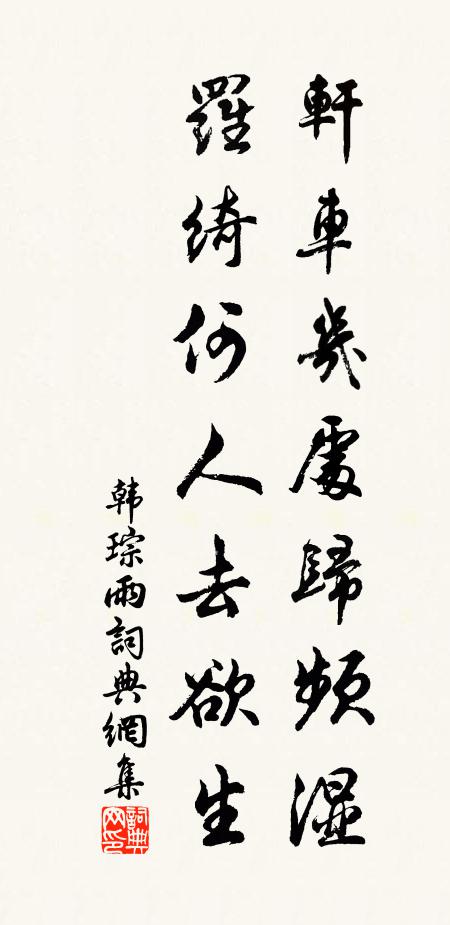 軒車幾處歸頻濕
羅綺何人去欲生
韩琮雨詞典網集
詞典網印